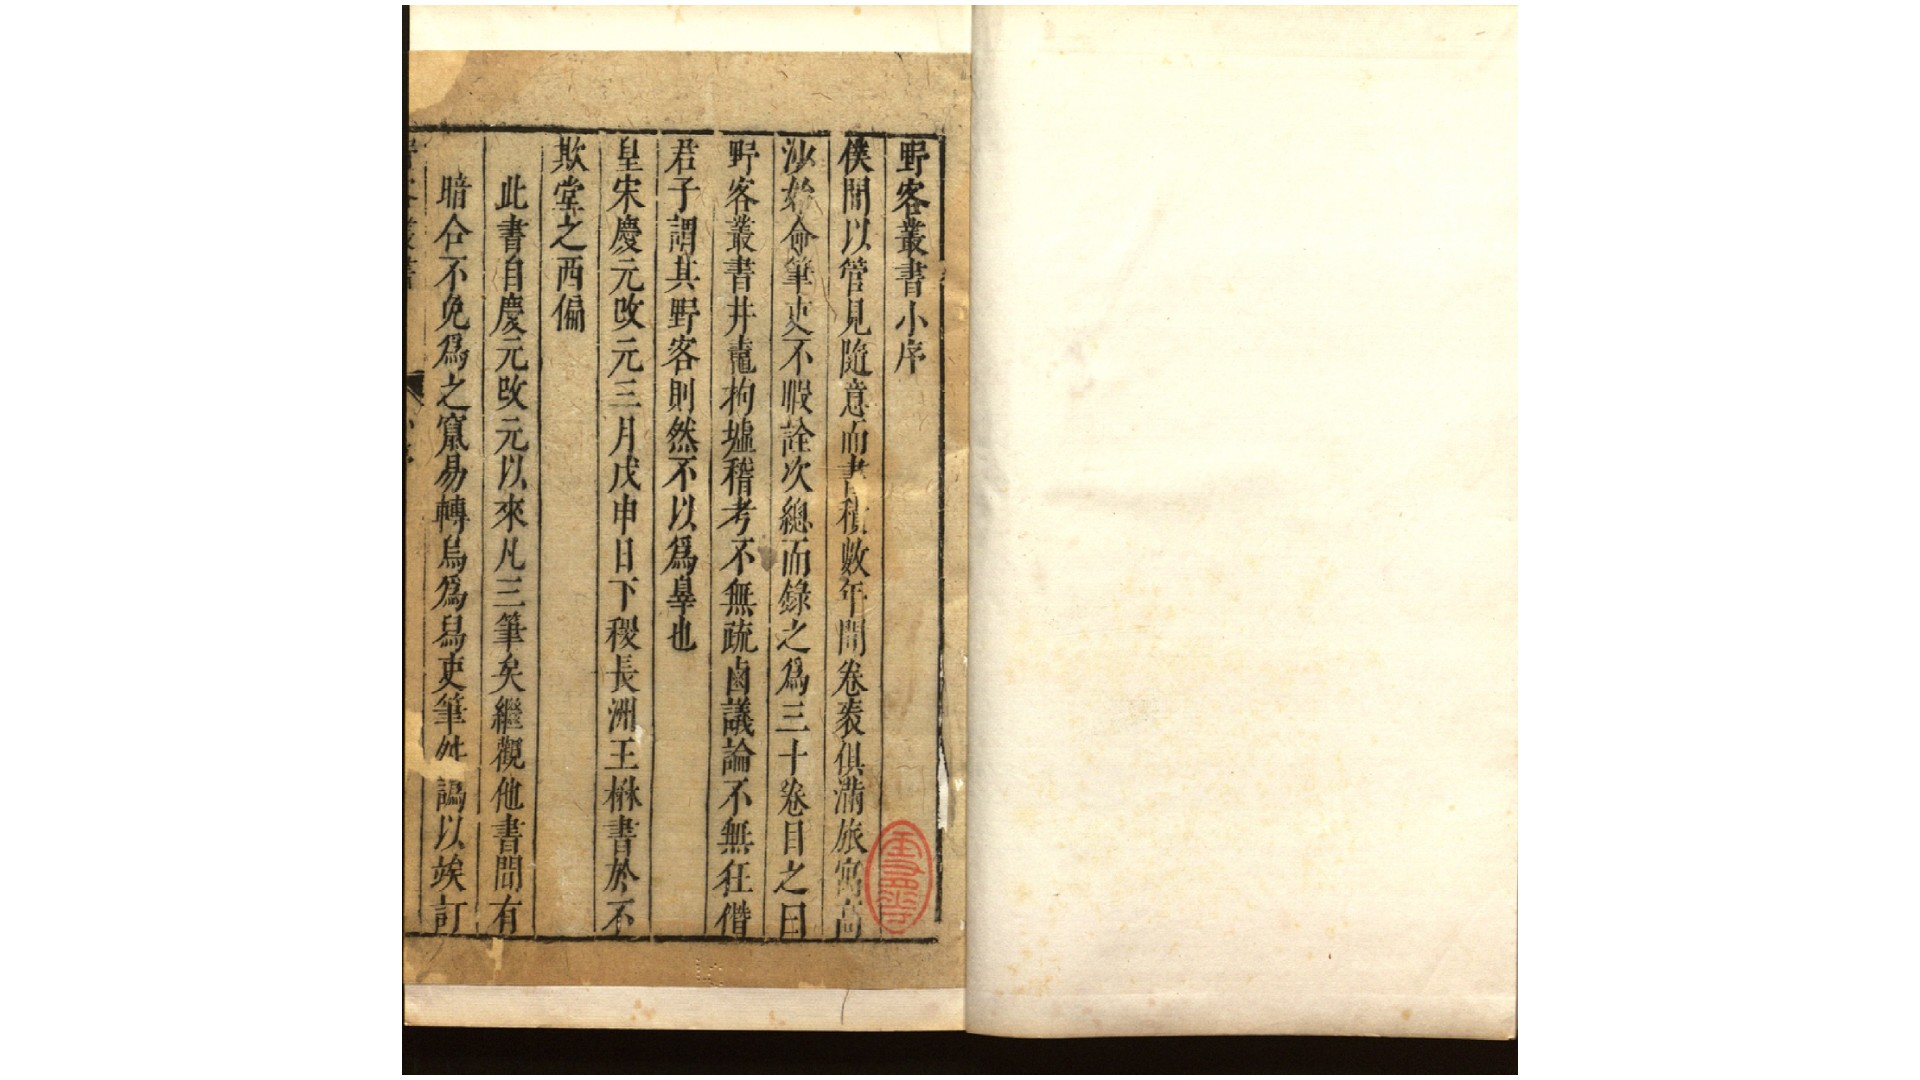 野客叢書小序
僕間以管見隨意而書積數年間卷袠俱滿旅寓高
沙始命筆吏不暇詮次總而錄之爲三十卷目之曰
野客叢書井鼃拘墟稽考不無疏鹵議論不無狂僭
君子謂其野客則然不以爲辠也
皇宋慶元改元三月戊申日下稷長洲王楙書於不
欺堂之西偏
此書自慶元改元以來凡三筆矣繼觀他書間有
暗合不免爲之竄易轉烏爲舃吏筆舛譌以竢訂
野客叢書